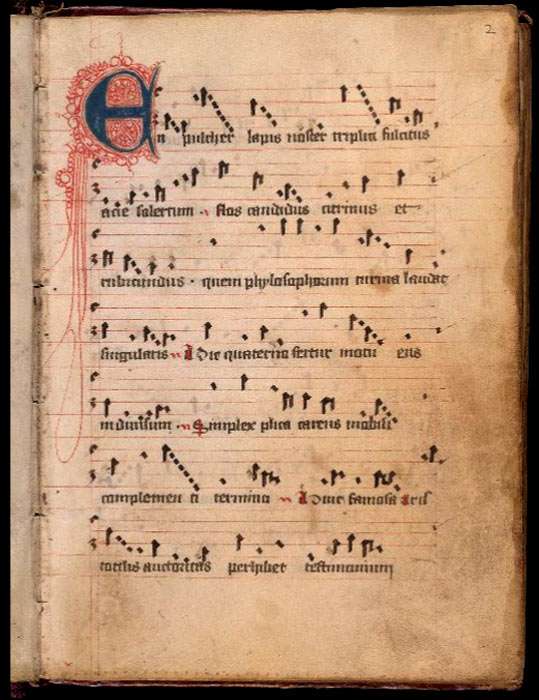 2
En pulcher lapis noster triplici fulcitus
acie solertum flos candidus citrinus et
rubicundus · quem phylosophorum turma laudat
singularis fertur motu
indiuisum Simplex plica carens mobili
complementi termino famosa
tocius auctoritas perhibet testimonium